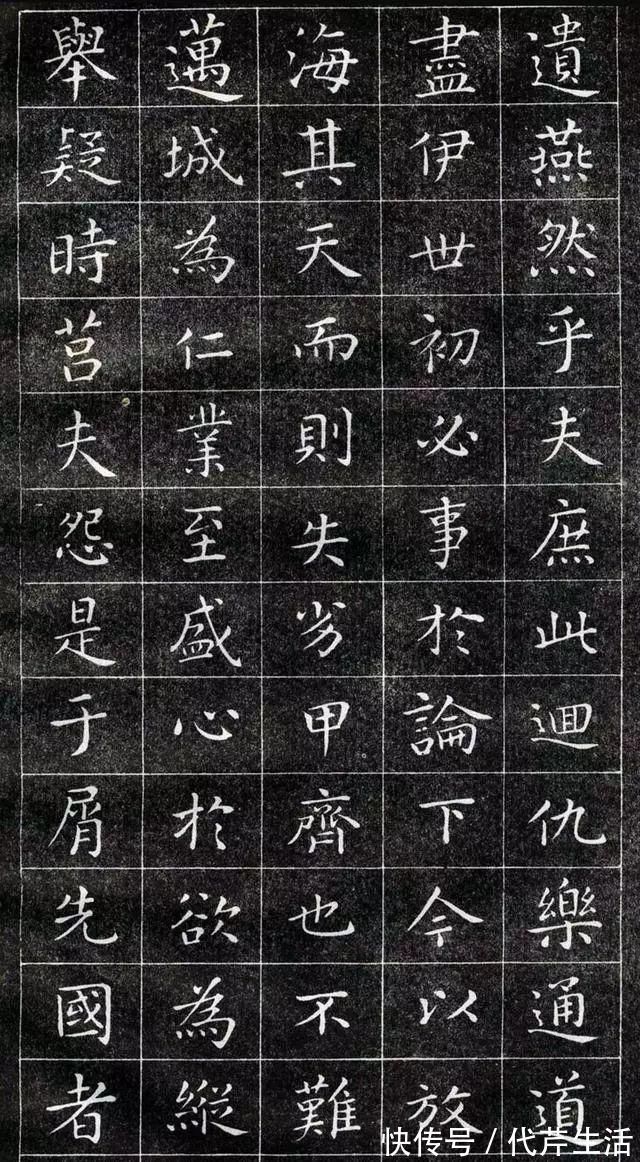 遺燕然乎夫庶此迴仇樂通道
盡伊世初必事於論下今以放
海其天而則失劣甲齊也不難
邁城為仁業至盛心於欲為縱
舉疑時莒夫怨是于屑先國者
快传号 / 代芹生活